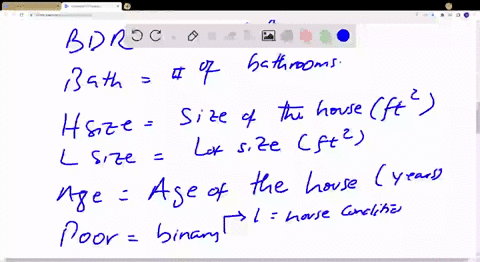 BDR
Bath = # of bathrooms.
H size = Size of the house (ft²)
L size = Lot size (ft²)
Age = Age of the house (years)
Poor = binary → 1 = house condition